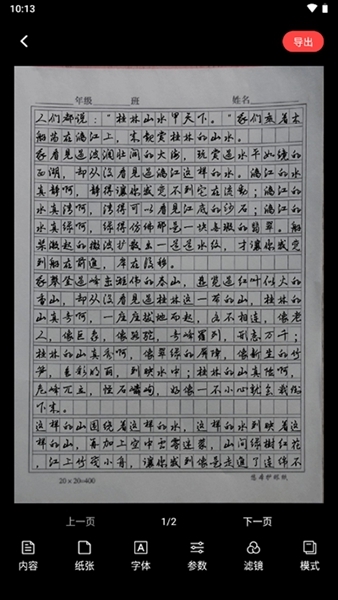 10:13
导出
年级 班 姓名
人们都说："桂林山水甲天下。"我们乘着木
船荡在漓江上，来观赏桂林的山水。
我看见过波澜壮阔的大海，玩赏过水平如镜的
西湖，却从没看见过漓江这样的水。漓江的水
真静啊，静得让你感受不到它在流动；漓江的
水真清啊，清得可以看见江底的沙石；漓江的
水真绿啊，绿得仿佛那是一块无瑕的翡翠。船
桨激起的微波扩散出一道道水纹，才让你感觉
到船在前进，岸在后移。
我攀登过峰峦雄伟的泰山，游览过红叶似火的
香山，却从没看见过桂林这一带的山，桂林的
山真奇啊，一座座拔地而起，各不相连，像老
人，像巨象，像骆驼，奇峰罗列，形态万千；
桂林的山真秀啊，像翠绿的屏障，像新生的竹
笋，色彩明丽，倒映水中；桂林的山真险啊，
危峰兀立，怪石嶙峋，好像一不小心就会栽倒
下来。
这样的山围绕着这样的水，这样的水倒映着这
样的山，再加上空中云雾迷蒙，山间绿树红花
，江上竹筏小舟，让你感到像是走进了连绵不
20×20=400
上一页 1/2 下一页
内容 纸张 字体 参数 滤镜 模式